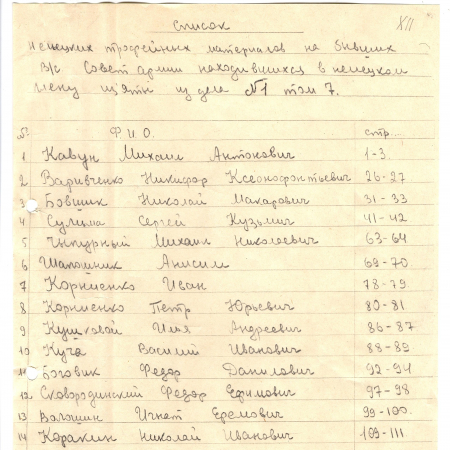 XII
Список
немецких трофейных материалов на бывших
в/с Совет армии находившихся в немецком
плену изъяты из дела №1 том 7.
№ Ф.И.О. стр.
1 Кавун Михаил Антонович 1-3
2 Варивченко Никифор Ксенофонтьевич 26-27
3 Бовшик Николай Макарович 31-33
4 Сулима Сергей Кузьмич 41-42
5 Чыпурный Михаил Николаевич 63-64
6 Шапошник Анисим 69-70
7 Корниенко Иван 78-79
8 Корниенко Петр Юрьевич 80-81
9 Кушковой Илья Андреевич 86-87
10 Куча Василий Иванович 88-89
11 Боговик Федор Данилович 92-94
12 Сковородинский Федор Ефимович 97-98
13 Волошин Игнат Еремович 99-100
14 Каракин Николай Иванович 109-111